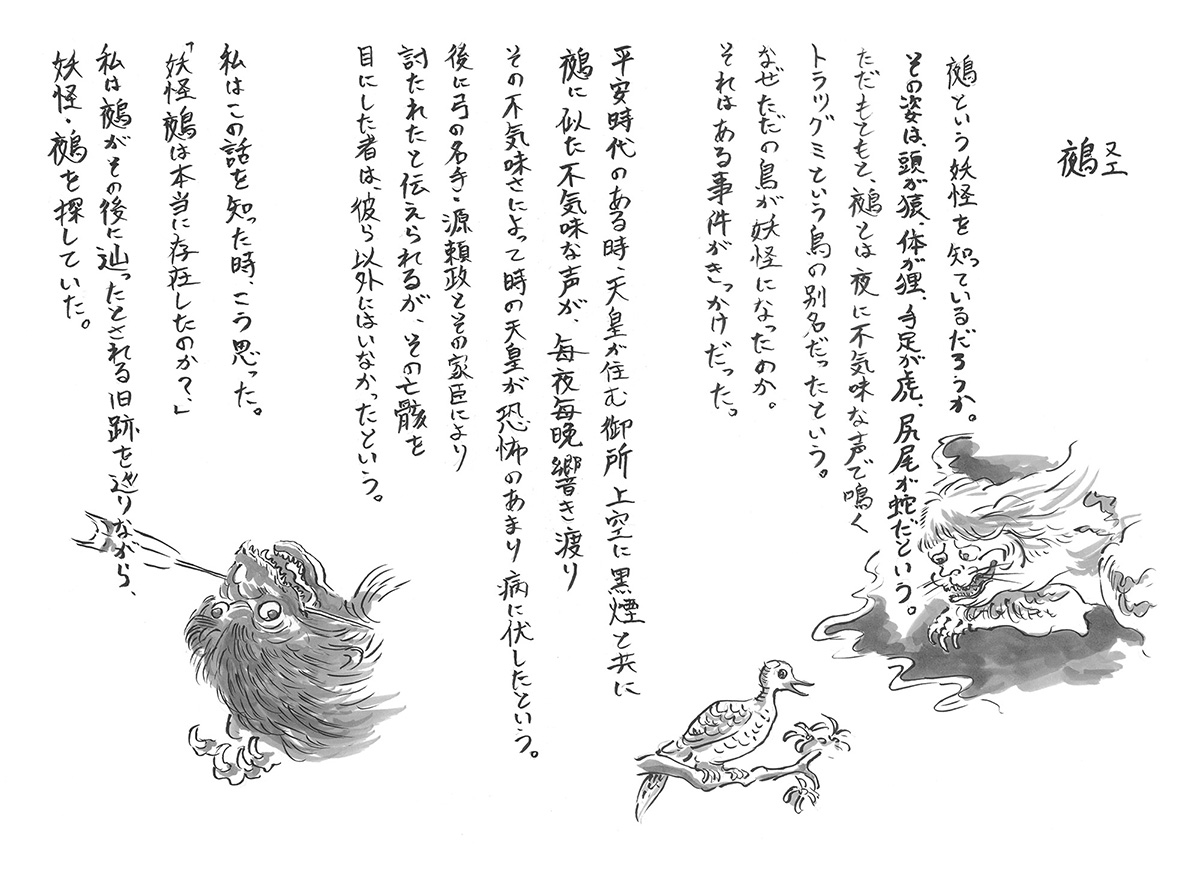 鵺ヌエ
鵺という妖怪を知っているだろうか。
その姿は、頭が猿、体が狸、手足が虎、尻尾が蛇だという。
ただもともと、鵺とは夜に不気味な声で鳴く
トラツグミという鳥の別名だったという。
なぜただの鳥が妖怪になったのか。
それはある事件がきっかけだった。
平安時代のある時、天皇が住む御所上空に黒煙と共に
鵺に似た不気味な声が、毎夜毎晩響き渡り
その不気味さによって時の天皇が恐怖のあまり病に伏したという。
後に弓の名手・源頼政とその家臣により
討たれたと伝えられるが、その亡骸を
目にした者は、彼ら以外にはいなかったという。
私はこの話を知った時、こう思った。
「妖怪鵺は本当に存在したのか？」
私は鵺がその後に辿ったとされる旧跡を巡りながら、
妖怪・鵺を探していた。